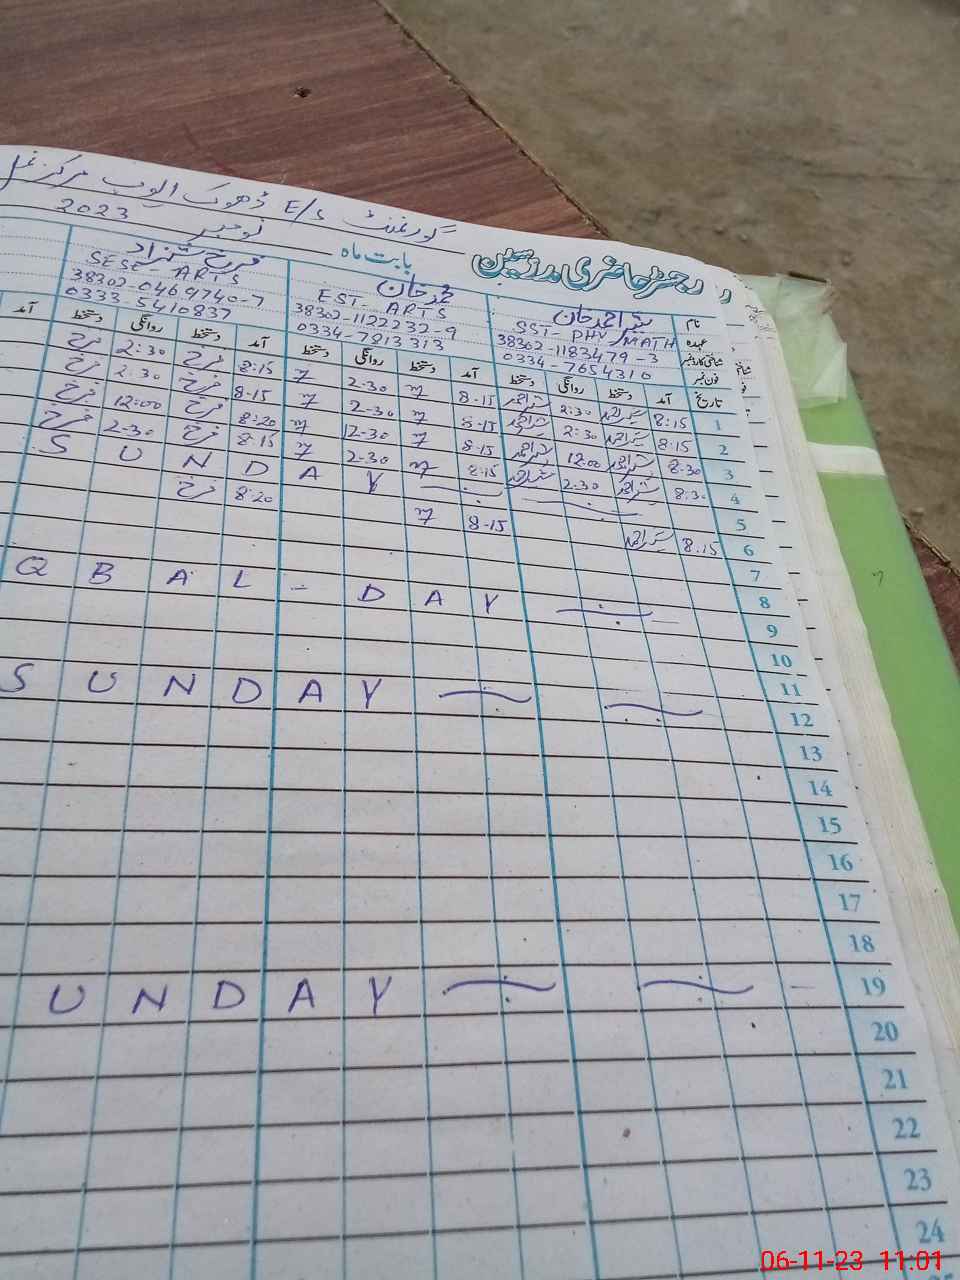 رجسٹر حاضری مدرسین
گورنمنٹ E/S ڈھوک ایوب مرکز
بابت ماہ نومبر 2023
نام
عہدہ
شناختی کارڈ نمبر
فون نمبر
تاریخ
شیر احمد خان
SST - PHY/MATH
38302-1183479-3
0334-7654310
محمد خان
EST - ARTS
38302-1122232-9
0334-7813313
فرخ شہزاد
SESE - ARTS
38302-0469740-7
0333-5410837
آمد دستخط روانگی دستخط آمد دستخط روانگی دستخط آمد دستخط روانگی دستخط آمد
1 8:15 2:30 8-15 2-30 8:15 فرخ 2:30 فرخ
2 8:15 2:30 8-15 2-30 8-15 فرخ 2:30 فرخ
3 8:30 12:00 8-15 12-30 8:20 فرخ 12:00 فرخ
4 8:30 2:30 8:15 2-30 8:15 فرخ 2-30 فرخ
5 S U N D A Y
6 8:15 8-15 8:20 فرخ
7
8
9 Q B A L - D A Y
10
11
12 S U N D A Y
13
14
15
16
17
18
19 U N D A Y
20
21
22
23
24
06-11-23 11:01